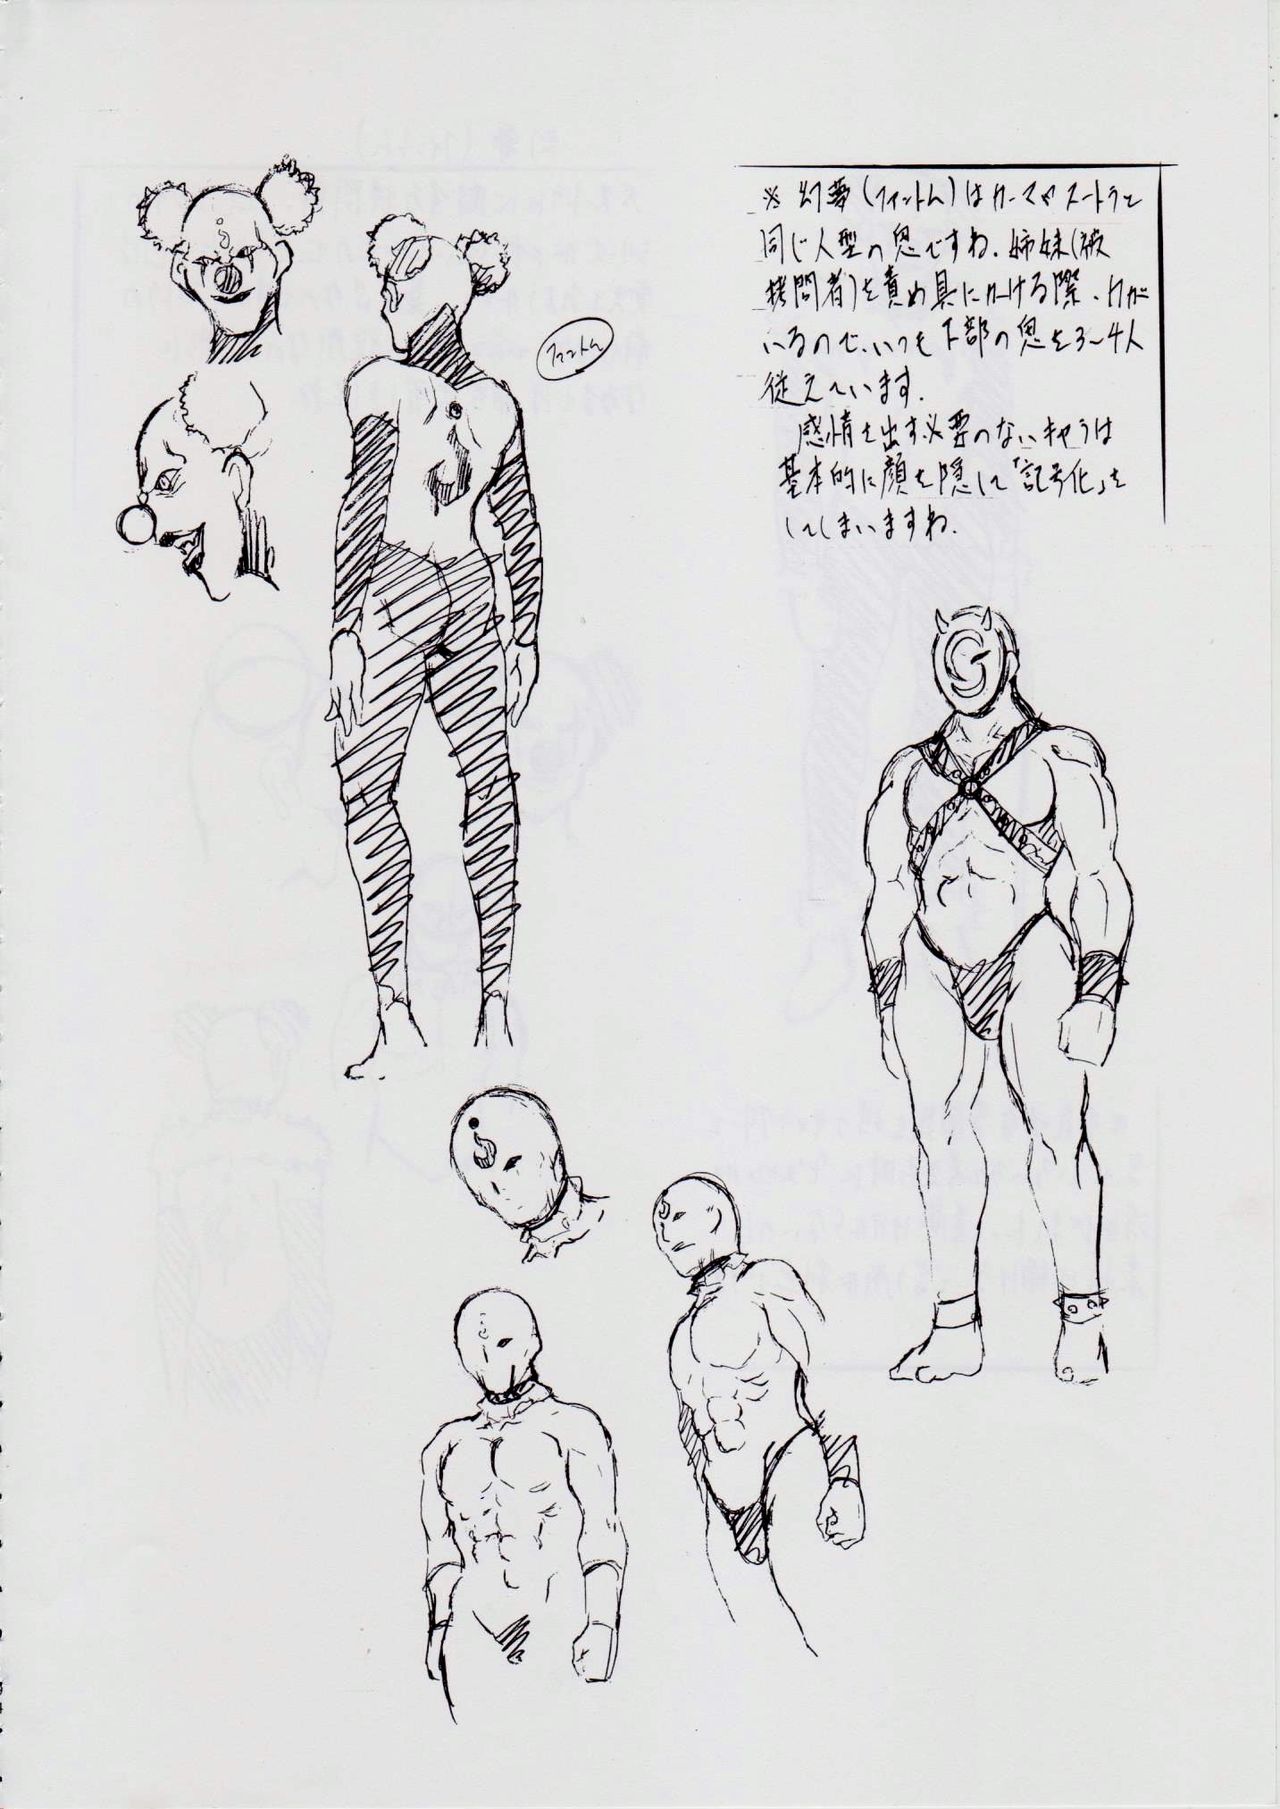 ファントム
※ 幻夢(ファントム)はカーマやスートラと
同じ人型の鬼ですね。姉妹(被
拷問者)を責め具にかける際、力が
いるので、いつも下部の鬼を3〜4人
従えています。
感情を出す必要のないキャラは
基本的に顔を隠して「記号化」を
してしまいますね。